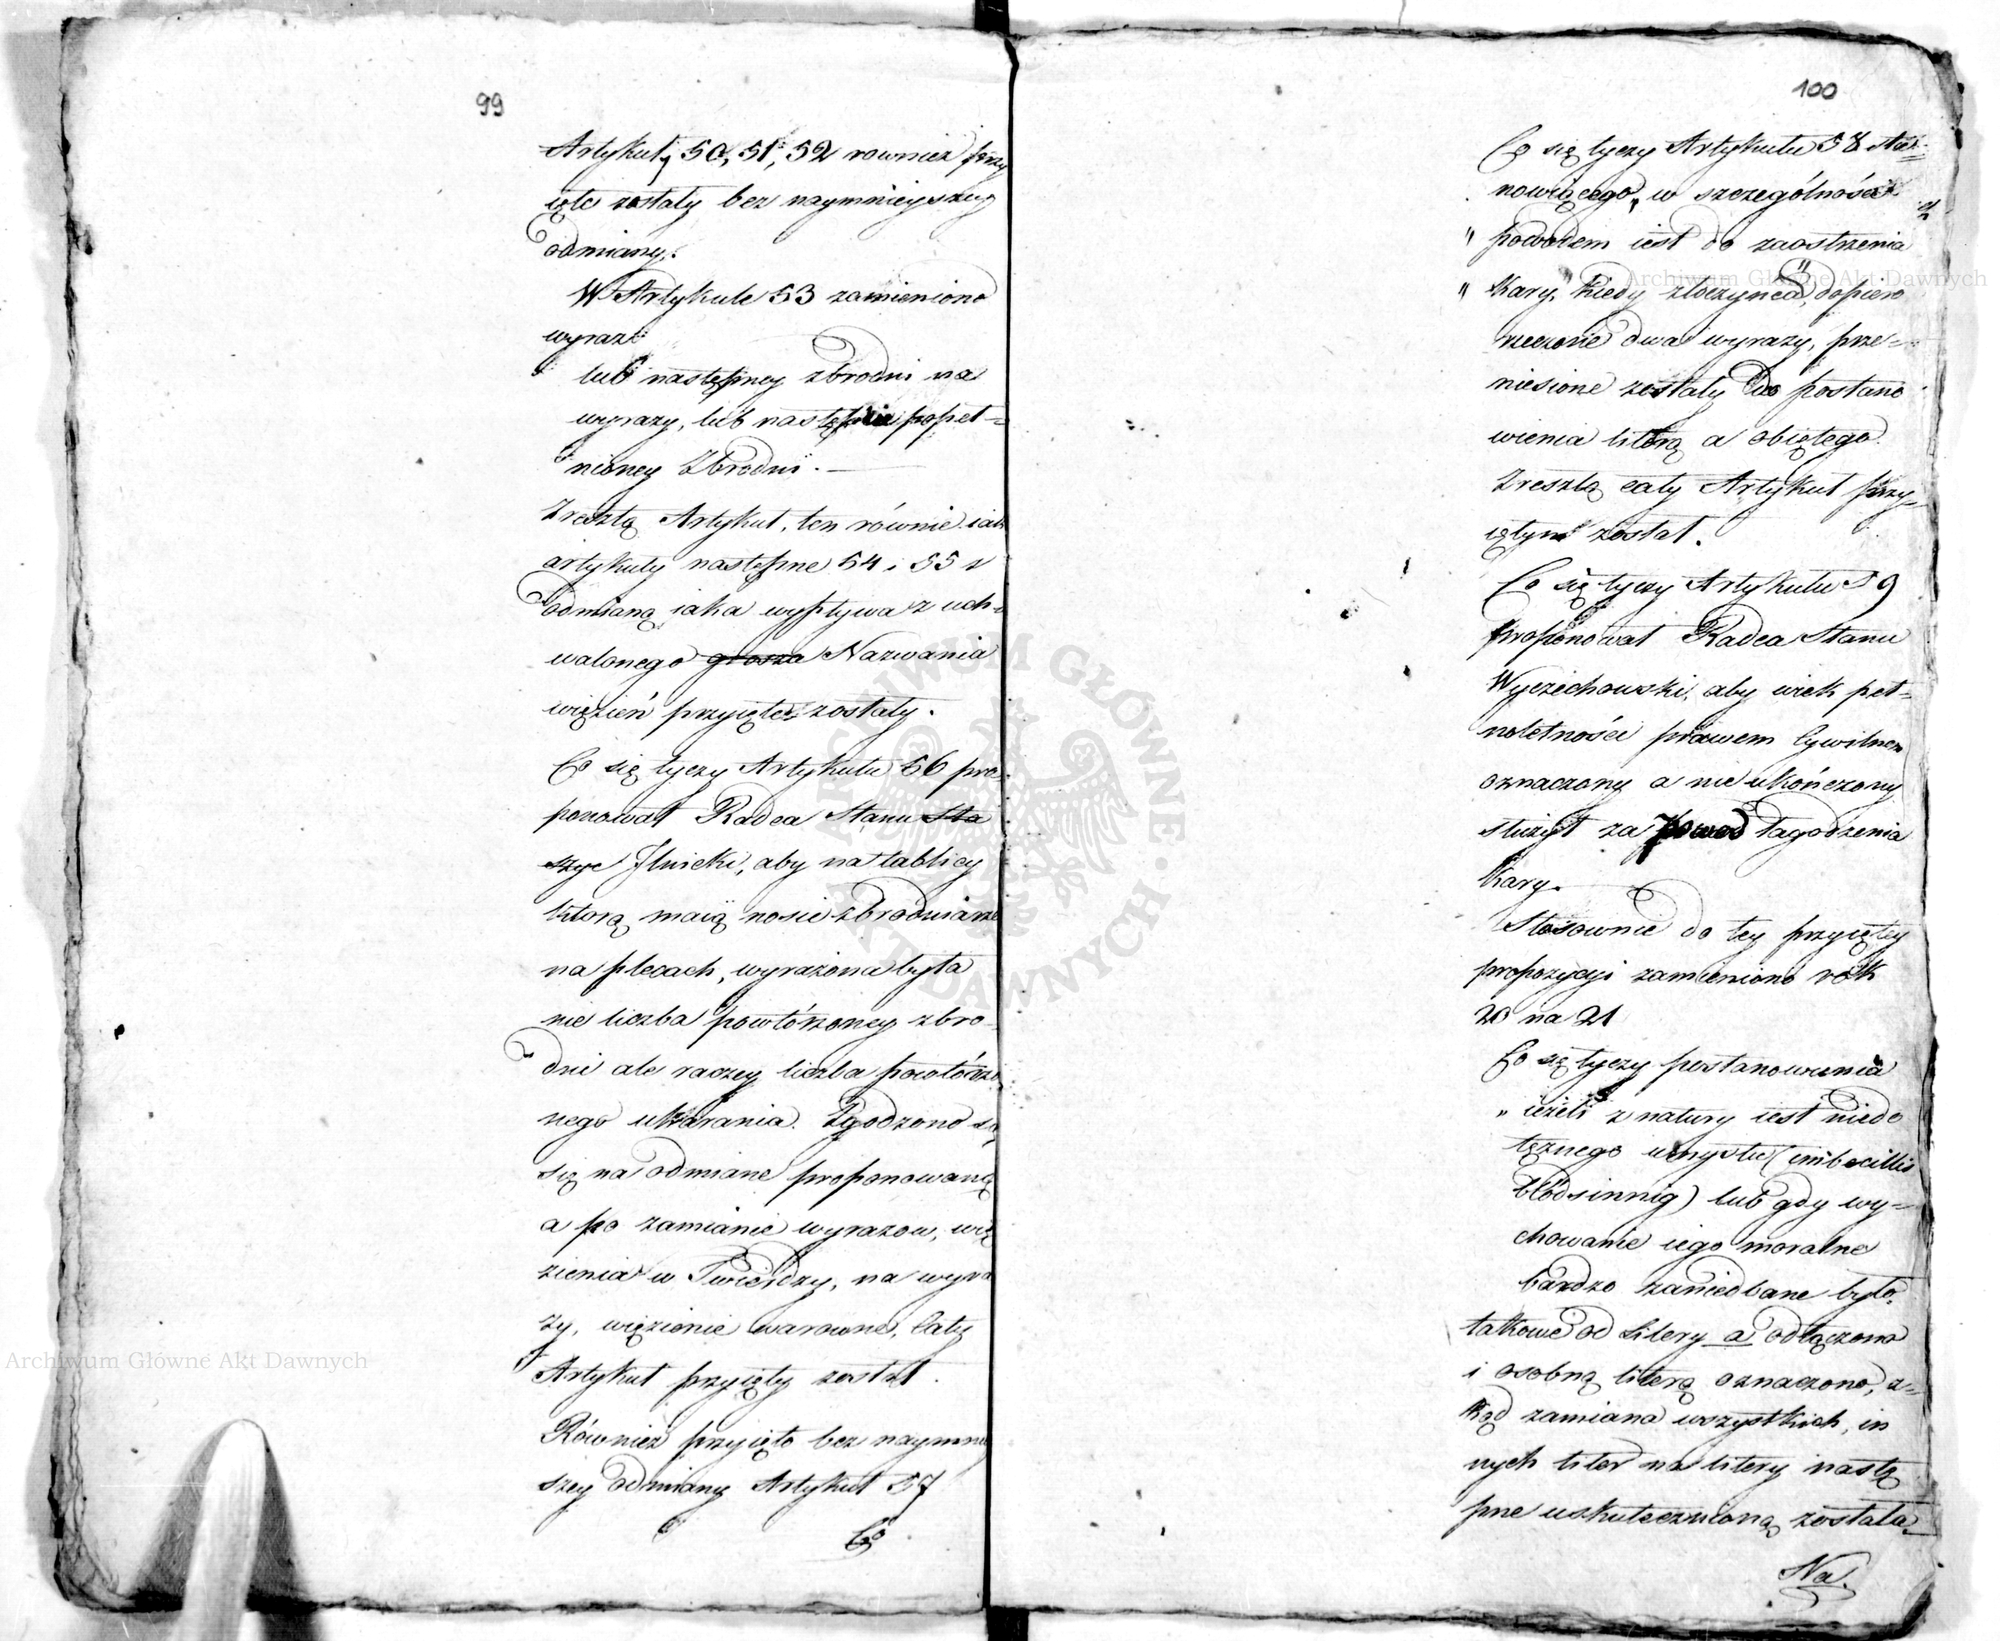 99
Artykuły 50, 51, 52 rownież przy
ięte zostały bez naymnieyszey
odmiany.
W Artykule 53 zamieniono
wyraz
lub następney zbrodni na
wyrazy, lub następnie popeł=
nioney Zbrodni. —
Zresztą Artykuł, ten równie iak
artykuły następne 54 i 55 z
odmianą jaka wypływa z uch=
walonego Nazwania
więzień przyięte zostały.
Co się tyczy Artykułu 56 pro
ponował Radca Stanu Sta
szyc Ilnicki, aby na tablicy
którą maią nosic zbrodniarze
na plecach, wyrażona była
nie liczba powtórzoney zbro
dni ale raczey liczba powtórzo
nego ukarania. Zgodzono
się na odmianę proponowaną
a po zamianie wyrazow, wię
zienia w Twierdzy, na wyra
zy, więzienie warowne, Cały
Artykuł przyięty został.
Również przyięto bez naymniey
szey odmiany Artykuł 57
Co
100
Co się tyczy Artykułu 58 sta=
nowiącego, w szczególności
" powodem iest do zaostrzenia
" Kary, " Kiedy złoczyńca, dopiero
rzeczone dwa wyrazy, prze=
niesione zostały do postano
wienia literą a obiętego.
Zresztą cały Artykuł przy=
iętym został.
Co się tyczy Artykułu 59
proponował Radca Stanu
Wyczechowski, aby wiek peł=
noletności prawem Cywilnem
oznaczony a nie ukończony
służył za powod łagodzenia
Kary.
Stosownie do tey przyiętey
propozycji zamieniono rok
20 na 21
Co się tyczy postanowienia
" ieżeli z natury iest niedo
łężnego umysłu (imbecillis
blödsinnig) lub gdy wy=
chowanie iego moralne
bardzo zaniedbane było,
takowe od Litery a odłączono
i osobną literą oznaczono, z=
kąd zamiana wszystkich, in
nych liter na litery nastę
pne uskutecznioną została.
Na.
Archiwum Główne Akt Dawnych
Archiwum Główne Akt Dawnych
ARCHIWUM GŁÓWNE · AKT DAWNYCH ·